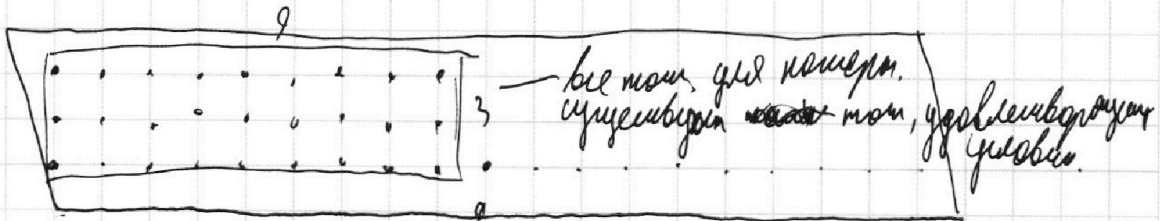 9
все точки, для которых
3
существует точки, удовлетворяющая
условию.
9